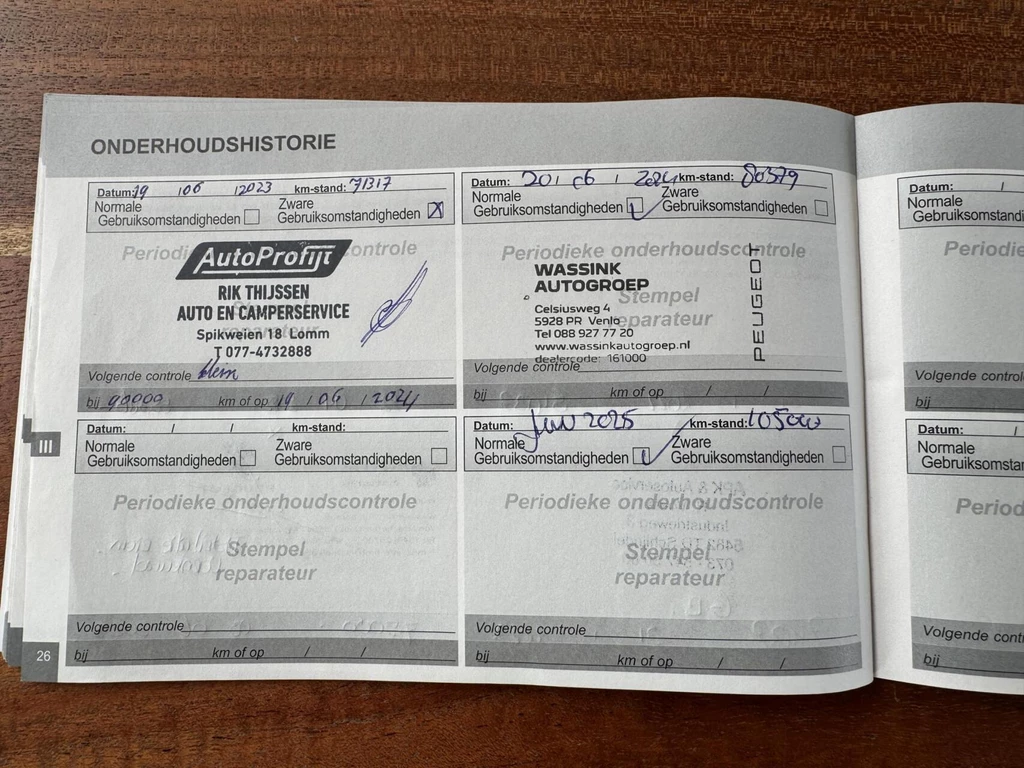 ONDERHOUDSHISTORIE
Datum: 19 / 06 / 2023 km-stand: 71317
Normale Gebruiksomstandigheden
Zware Gebruiksomstandigheden X
Periodieke controle
AutoProfijt
RIK THIJSSEN
AUTO EN CAMPERSERVICE
Spikweien 18 Lomm
T 077-4732888
Stempel
reparateur
Volgende controle klein
bij 90000 km of op 19 / 06 / 2024
Datum: 20 / 06 / 2024 km-stand: 80379
Normale Gebruiksomstandigheden
Zware Gebruiksomstandigheden
Periodieke onderhoudscontrole
WASSINK
AUTOGROEP
Celsiusweg 4
5928 PR Venlo
Tel 088 927 77 20
www.wassinkautogroep.nl
dealercode: 161000
PEUGEOT
Stempel
reparateur
Volgende controle
bij km of op / /
III
Datum: / / km-stand:
Normale Gebruiksomstandigheden
Zware Gebruiksomstandigheden
Periodieke onderhoudscontrole
Stempel
reparateur
Volgende controle
bij km of op / /
Datum: Juni 2025 km-stand: 105000
Normale Gebruiksomstandigheden
Zware Gebruiksomstandigheden
Periodieke onderhoudscontrole
Stempel
reparateur
Volgende controle
bij km of op / /
26
Datum: /
Normale
Gebruiksomsta
Periodie
Volgende control
bij
Datum: /
Normale
Gebruiksomstan
Period
Volgende contr
bij